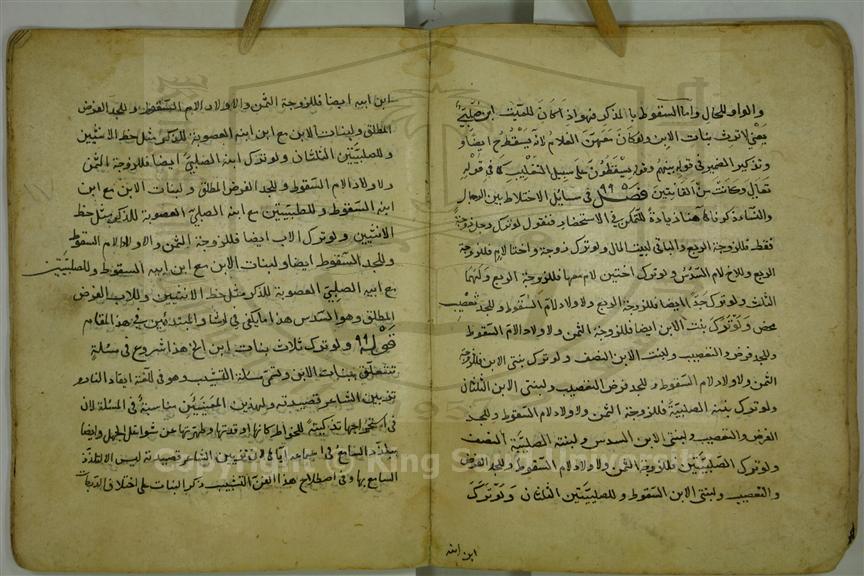 والواو للحال واما السقوط بالمذكر فهو اذا كان للميت ابن صلبي
يعني لا ترث بنات الابن ولو كان معهن الغلام لانه يسقط ايضا و
وتذكير الضمير في قوله بينهم وقوله يسقطون على سبيل التغليب كما في قوله
تعالى وكانت من القانتين فصل في مسائل الاختلاط بين الرجال
والنساء ذكرناها هنا زيادة للتمكن في الاستحضار فنقول لو ترك رجل زوجة
فقط فللزوجة الربع والباقي لبيت المال ولو ترك زوجة واختا لام فللزوجة
الربع وللاخ لام السدس ولو ترك اختين لام معها فللزوجة الربع ولهما
الثلث ولو ترك جدا ايضا فللزوجة الربع ولاولاد لام السقوط وللجد تعصيب
محض ولو ترك بنت الابن ايضا فللزوجة الثمن ولاولاد الام السقوط
وللجد فرض والتعصيب ولبنت الابن النصف ولو ترك بنتي الابن فللزوجة
الثمن ولاولاد لام السقوط وللجد فرض التعصيب ولبنتي الابن الثلثان
ولو ترك بنته الصلبية فللزوجة الثمن ولاولاد لام السقوط وللجد
الفرض والتعصيب ولبنتي الابن السدس ولبنته الصلبية النصف
ولو ترك الصلبيتين فللزوجة الثمن ولاولاد لام السقوط وللجد الفرض
والتعصيب ولبنتي الابن السقوط وللصلبيتين الثلثان ولو ترك
ابن ابنه
ابن ابيه ايضا فللزوجة الثمن والاولاد الام السقوط وللجد الفرض
المطلق ولبنات الابن مع ابن ابنه العصوبة للذكر مثل حظ الانثيين
وللصلبيتين الثلثان ولو ترك ابنه الصلبي ايضا فللزوجة الثمن
ولاولاد الام السقوط وللجد الفرض المطلق ولبنات الابن مع ابن
ابنه السقوط وللصلبيتين مع ابنه الصلبي العصوبة للذكر مثل حظ
الانثيين ولو ترك الاب ايضا فللزوجة الثمن والاولاد الام السقوط
وللجد السقوط ايضا ولبنات الابن مع ابن ابيه السقوط وللصلبيتين
مع ابيه الصلبي العصوبة للذكر مثل حظ الانثيين وللاب الفرض
المطلق وهو السدس هذا ما يكفي لي ولك والمبتدئين في هذا المقام
قوله ولو ترك ثلاث بنات ابن الخ هذا شروع في مسئلة
تتعلق ببنات الابن وتسمى مسئلة التشبيب وهو في اللغة ايقاد النار و
تزيين الشاعر قصيدته ولهذين المعنيين مناسبة في المسئلة لان
في استخراجها تذكية للخواطر كانها اوقدتها وطهرتها عن شواغل الجهل وايضا
يتلذذ السامع في استماعه اياها لان تزيين الشاعر قصيدته ليس الا لتلذذ
السامع بها وفي اصطلاح هذا الفن التشبيب ذكر البنات على اختلاف الدرجات
Copyright © King Saud University